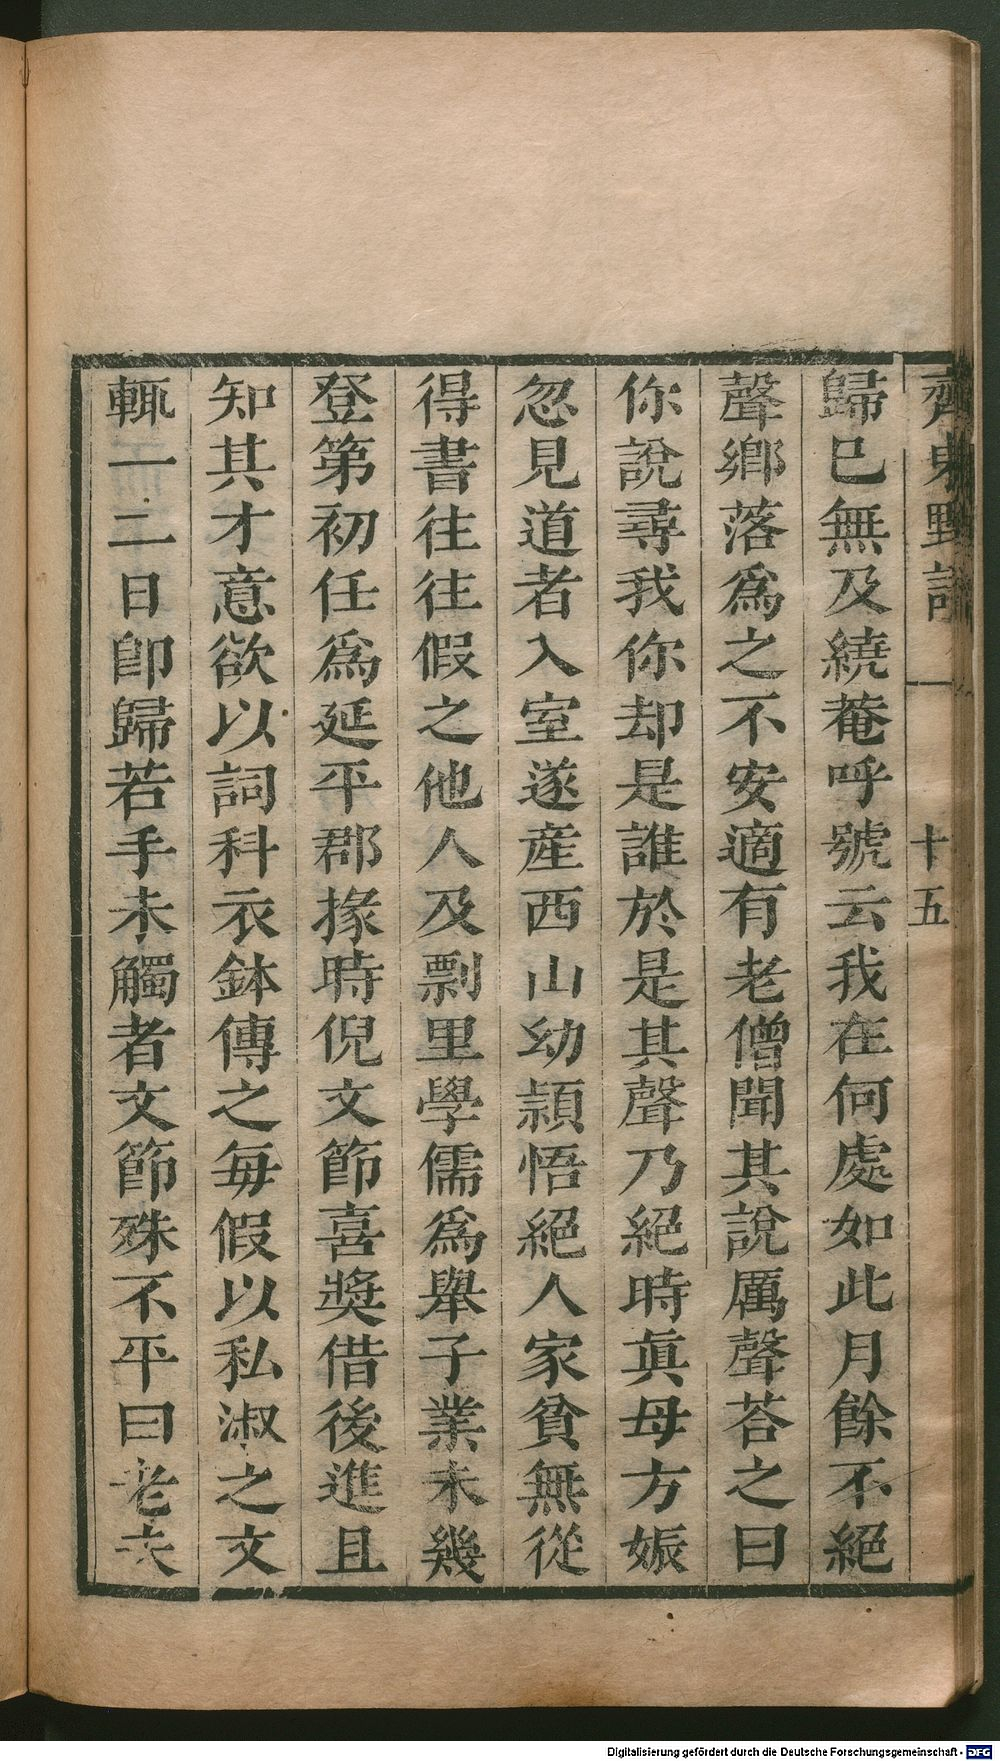 齊東野語
一
十五
歸已無及繞菴呼號云我在何處如此月餘不絕
聲鄉落爲之不安適有老僧聞其說厲聲荅之曰
你說尋我你却是誰於是其聲乃絕時眞母方娠
忽見道者入室遂産西山幼頴悟絕人家貧無從
得書往往假之他人及剽里學儒爲舉子業未幾
登第初任爲延平郡掾時倪文節喜奬借後進且
知其才意欲以詞科衣鉢傳之每假以私淑之文
輒一二日卽歸若手未觸者文節殊不平曰老夫
Digitalisierung gefördert durch die Deutsche Forschungsgemeinschaft - DFG